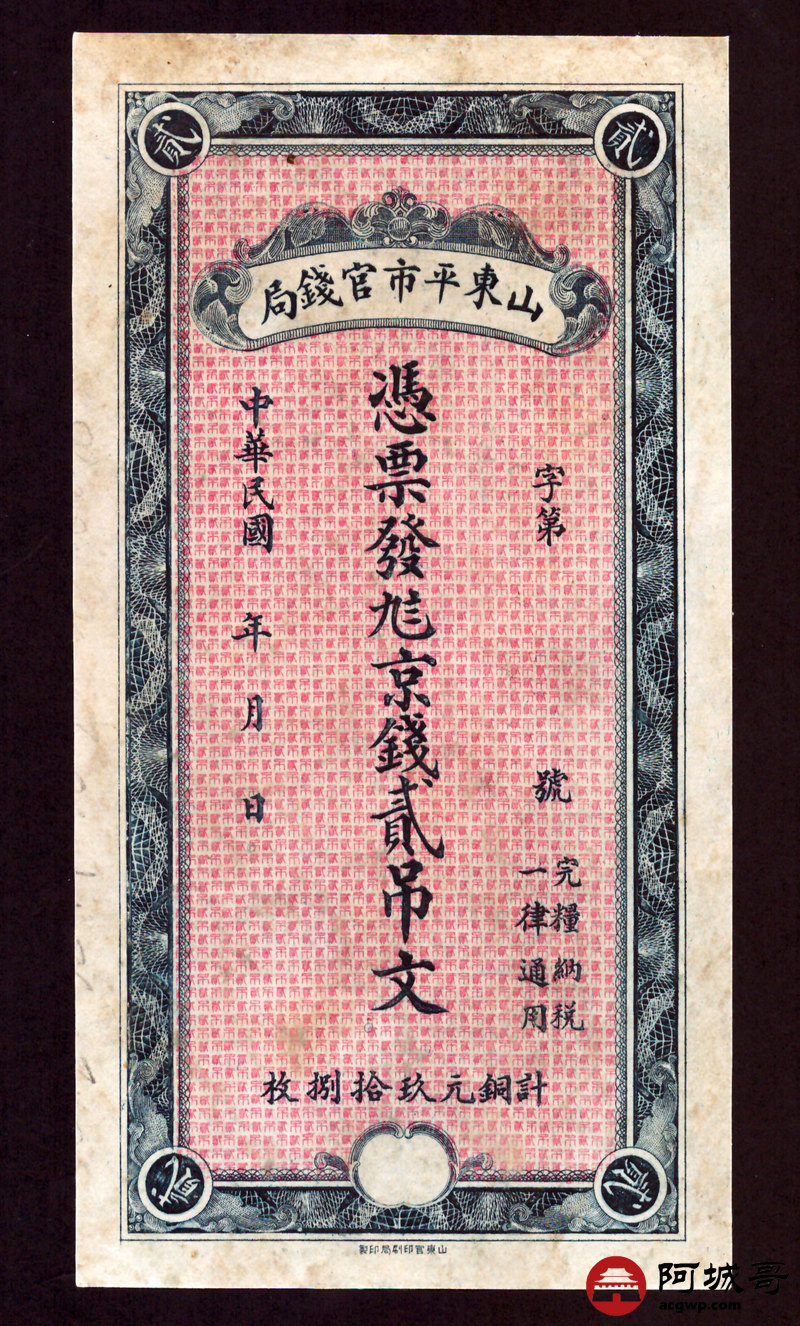 貳
貳
山東平市官錢局
字第 號
完糧納税
一律通用
憑票發兌京錢貳吊文
中華民國 年 月 日
計銅元玖拾捌枚
貳
貳
山東官印刷局印製
阿城哥
acgwp.com